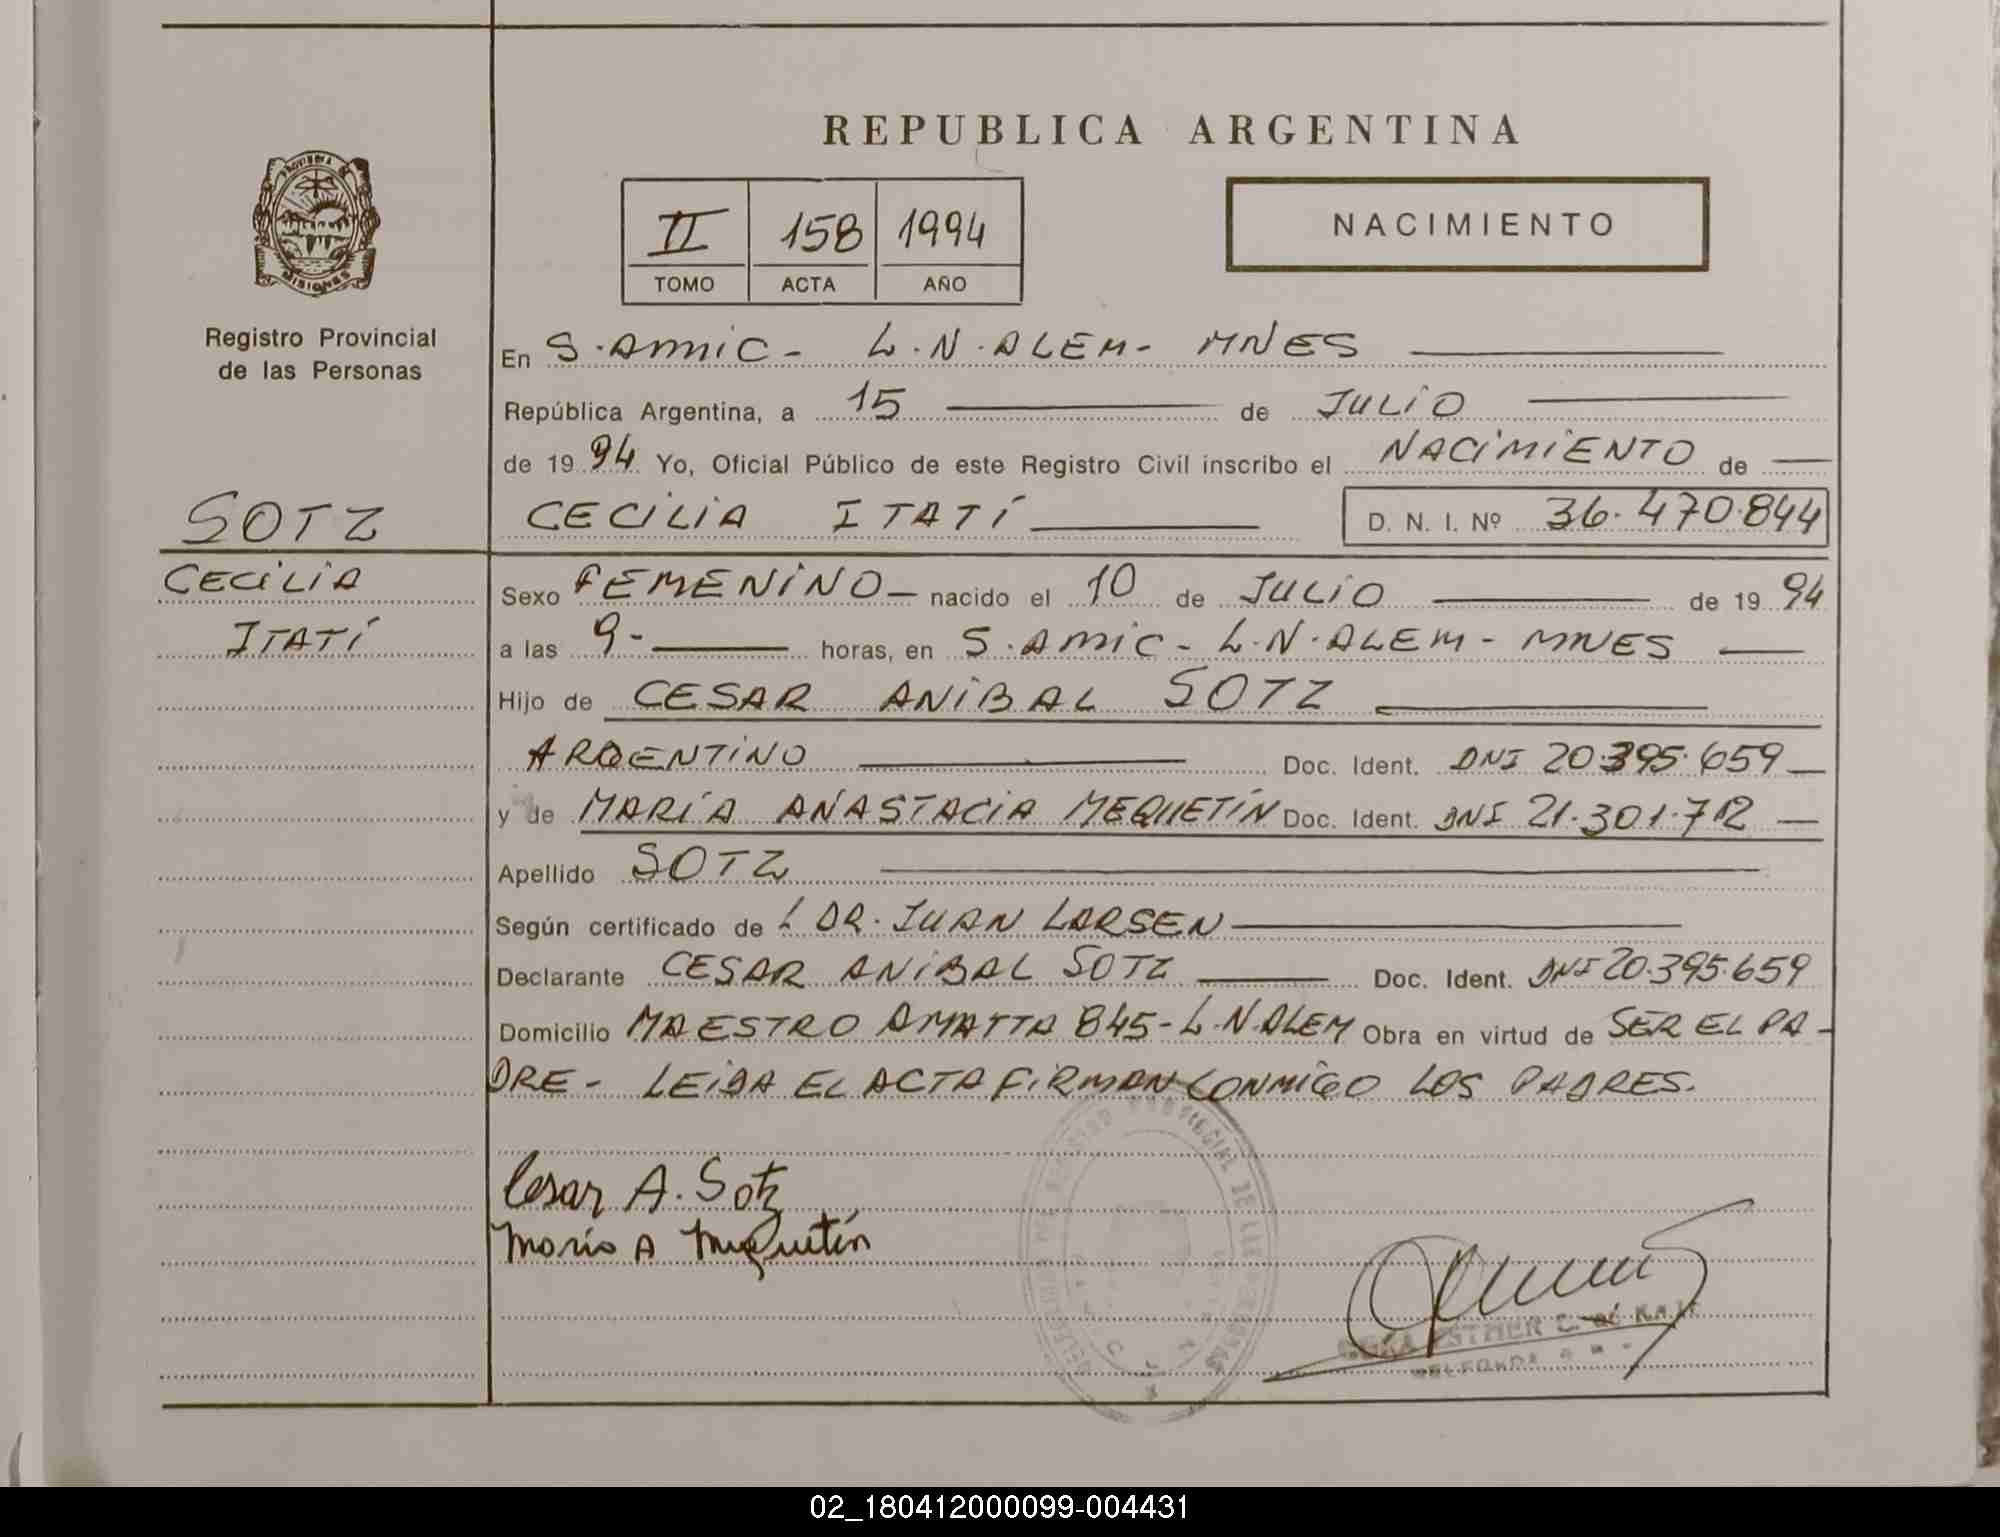 REPUBLICA ARGENTINA
PROVINCIA DE
MISIONES
Registro Provincial
de las Personas
II 158 1994
TOMO ACTA AÑO
NACIMIENTO
En S. AMIC - L. N. ALEM - MNES
República Argentina, a 15 de JULIO
de 1994 Yo, Oficial Público de este Registro Civil inscribo el NACIMIENTO de
SOTZ
CECILIA ITATÍ D. N. I. Nº 36.470.844
CECILIA
ITATÍ
Sexo FEMENINO - nacido el 10 de JULIO de 1994
a las 9- horas, en S. AMIC - L. N. ALEM - MNES
Hijo de CESAR ANIBAL SOTZ
ARGENTINO Doc. Ident. DNI 20.395.659
y de MARÍA ANASTACIA MEQUETÍN Doc. Ident. DNI 21.301.712
Apellido SOTZ
Según certificado de L DR. JUAN LARSEN
Declarante CESAR ANIBAL SOTZ Doc. Ident. DNI 20.395.659
Domicilio MAESTRO AMATTA 845 - L. N. ALEM Obra en virtud de SER EL PA-
DRE - LEIDA EL ACTA FIRMAN CONMIGO LOS PADRES.
Cesar A. Sotz
Maria A Mequetín
02_180412000099-004431